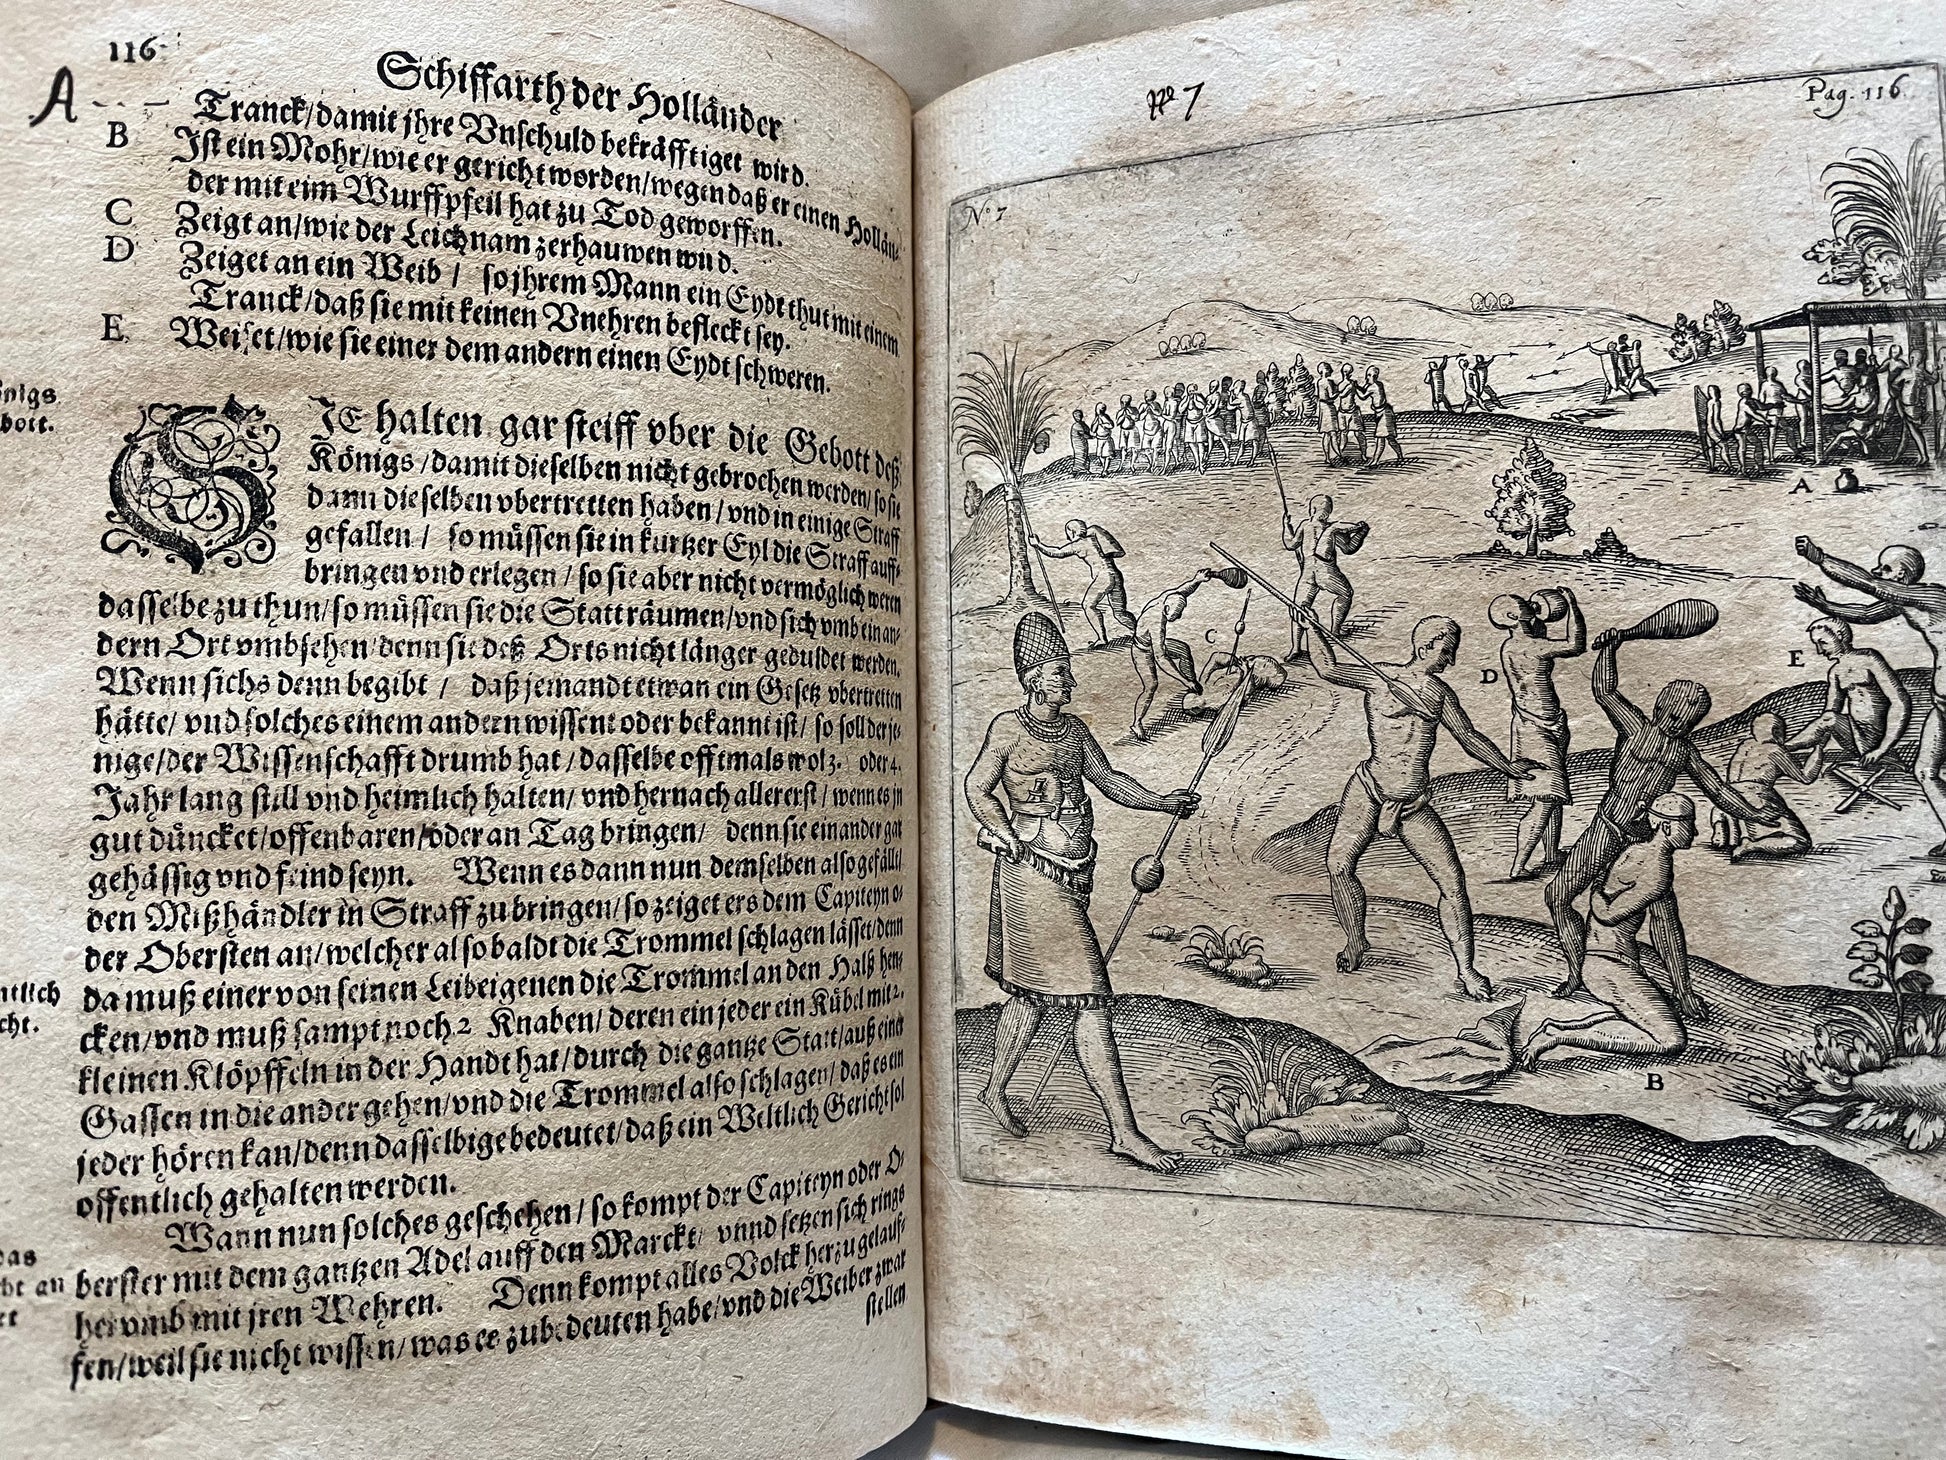 116
Schiffarth der Holländer
A
Tranck/damit jhre Vnschuld bekräfftiget wird.
B Ist ein Mohr/wie er gericht worden/wegen daß er einen Hollän-
der mit eim Wurffpfeil hat zu Tod geworffen.
C Zeigt an/wie der Leichnam zerhauwen wird.
D Zeiget an ein Weib / so jhrem Mann ein Eydt thut mit einem
Tranck/daß sie mit keinen Vnehren befleckt sey.
E Weiset/wie sie einer dem andern einen Eydt schweren.
SIE halten gar steiff vber die Gebott deß
Königs/damit dieselben nicht gebrochen werden/so sie
dann dieselben vbertretten haben/vnd in einige Straff
gefallen / so müssen sie in kurtzer Eyl die Straff auff-
bringen vnd erlegen/so sie aber nicht vermöglich weren
dasselbe zu thun/so müssen sie die Statt räumen/vnd sich vmb ein an-
dern Ort vmbsehen/denn sie deß Orts nicht länger geduldet werden.
Wenn sichs denn begibt / daß jemandt etwan ein Gesetz vbertretten
hätte/ vnd solches einem andern wissent oder bekannt ist/ so soll der je-
nige/der Wissenschafft drumb hat/dasselbe offtmals wol 3. oder 4.
Jahr lang still vnd heimlich halten/ vnd hernach allererst/ wenn es jn
gut düncket/offenbaren/oder an Tag bringen/ denn sie einander gar
gehässig vnd feind seyn. Wenn es dann nun demselben also gefällt/
den Mißhändler in Straff zu bringen/so zeiget ers dem Capiteyn o-
der Obersten an/welcher alsobaldt die Trommel schlagen lässet/denn
da muß einer von seinen Leibeigenen die Trommel an den Halß hen-
cken/vnd muß sampt noch 2 Knaben/ deren ein jeder ein Kübel mit 2.
kleinen Klöpffeln in der Handt hat/durch die gantze Statt/auß einer
Gassen in die ander gehen/vnd die Trommel also schlagen/daß es ein
jeder hören kan/denn dasselbige bedeutet/daß ein Weltlich Gericht sol
offentlich gehalten werden.
Wann nun solches geschehen/so kompt der Capiteyn oder O-
berster mit dem gantzen Adel auff den Marckt/ vnnd setzen sich rings
herumb mit jren Wehren. Denn kompt alles Volck herzu gelauf-
fen/weil sie nicht wissen/was es zubedeuten habe/vnd die Weiber zwar
stellen
No 7
Pag. 116.
No 7
A
C
D
E
B